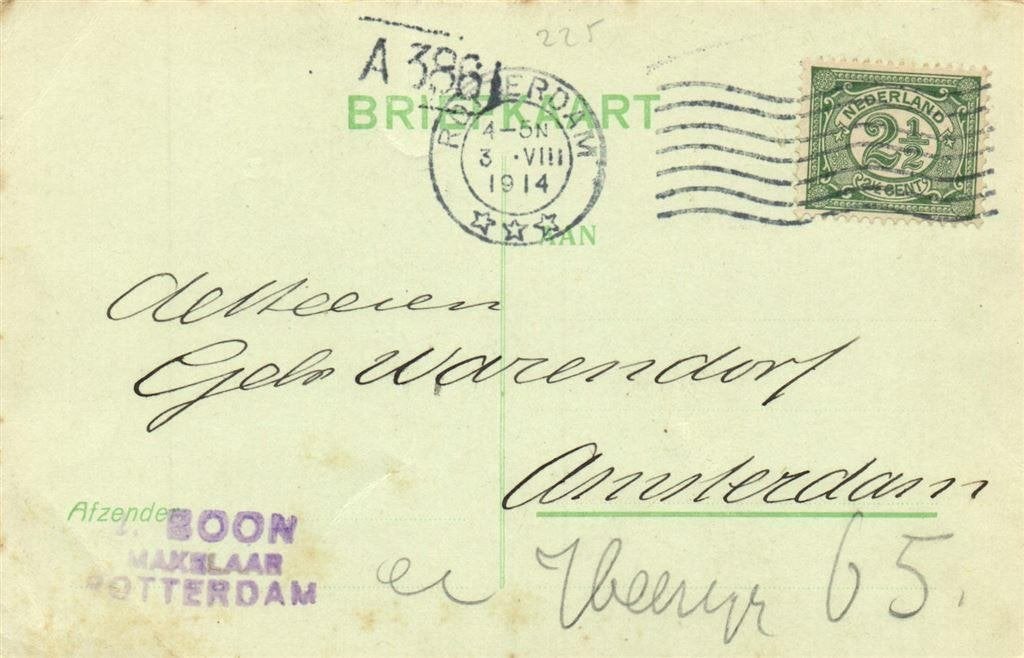 225
A 386
BRIEFKAART
ROTTERDAM
4-5N
3 .VIII
1914
NEDERLAND
2½
(2½ CENT)
AAN
de Heeren
Gebr Warendorf
Amsterdam
Afzender
BOON
MAKELAAR
ROTTERDAM
65.